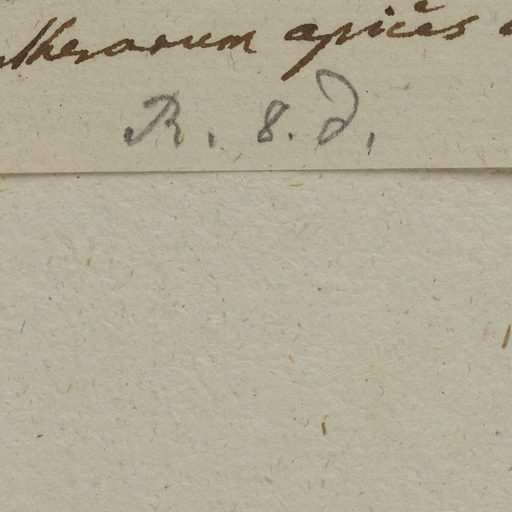 antherarum apicĕs
R. 8. d.